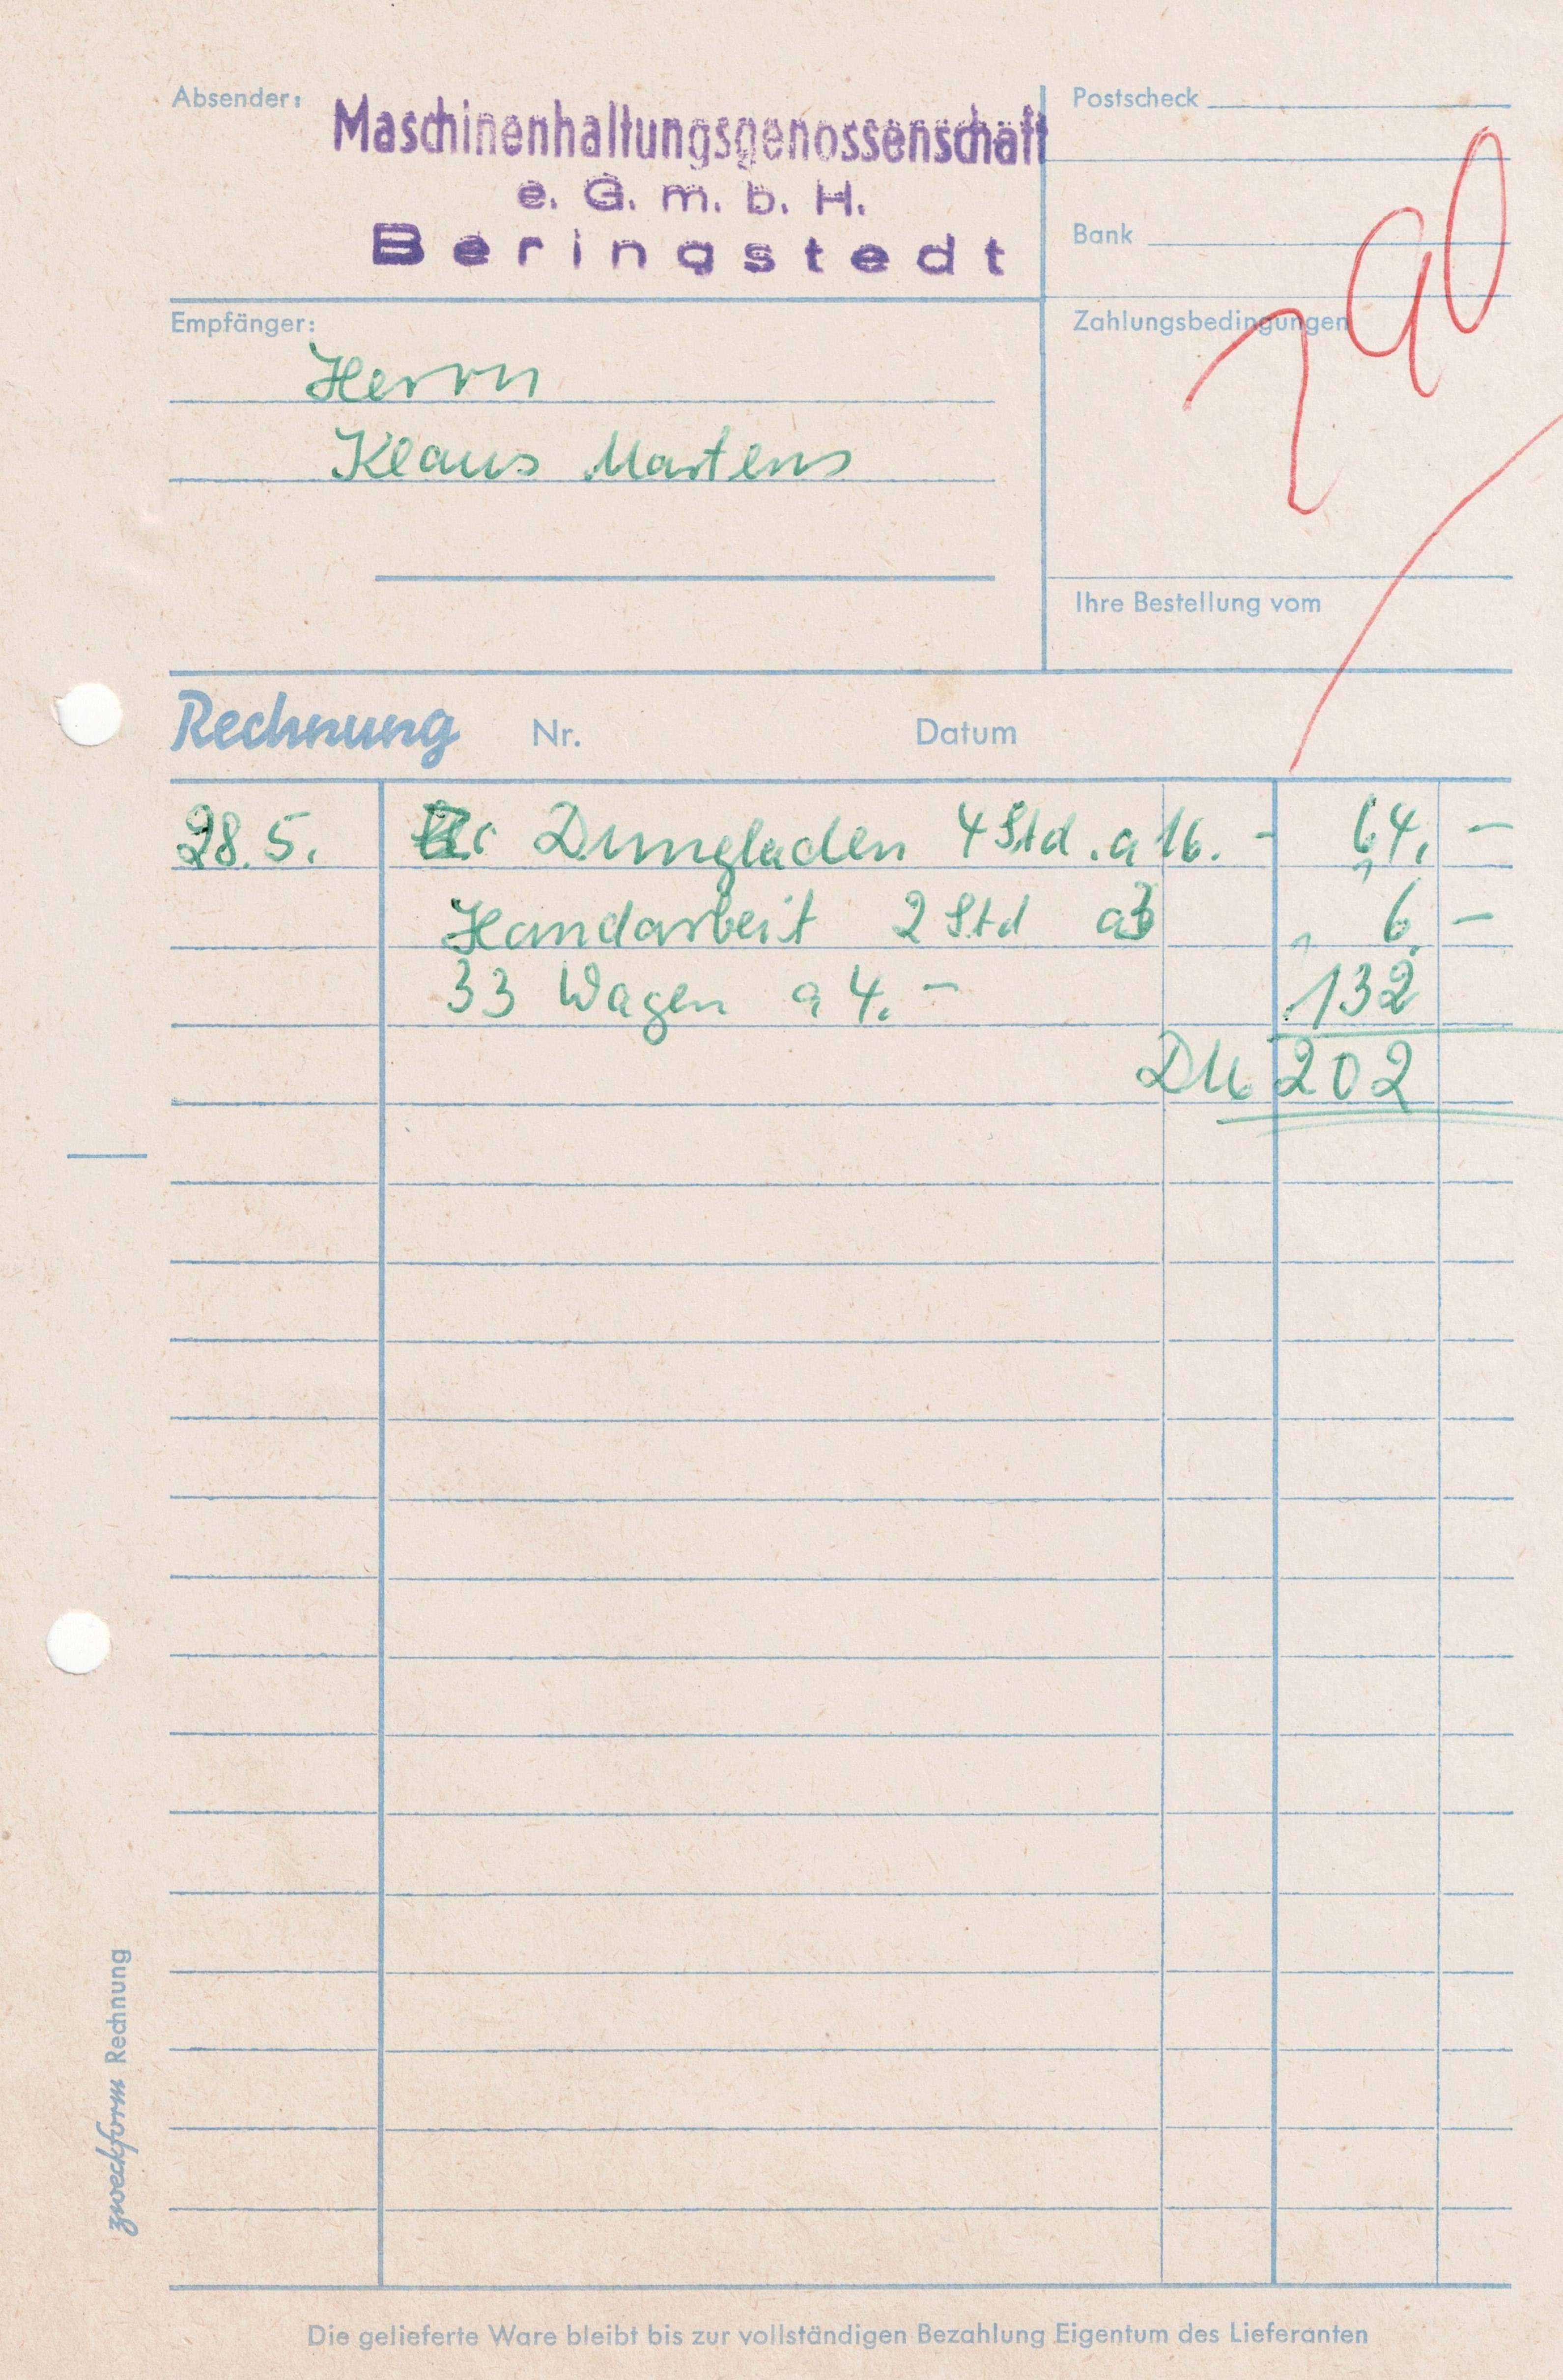 Absender:
Maschinenhaltungsgenossenschaft
e. G. m. b. H.
Beringstedt
Postscheck
Bank
Zahlungsbedingungen
Empfänger:
Herrn
Klaus Martens
Ihre Bestellung vom
Rechnung Nr. Datum
28.5. Dungladen 4 Std. a 16. - 64, -
Handarbeit 2 Std a 3 6. -
33 Wagen a 4. - 132
DM 202
zweckform Rechnung
Die gelieferte Ware bleibt bis zur vollständigen Bezahlung Eigentum des Lieferanten